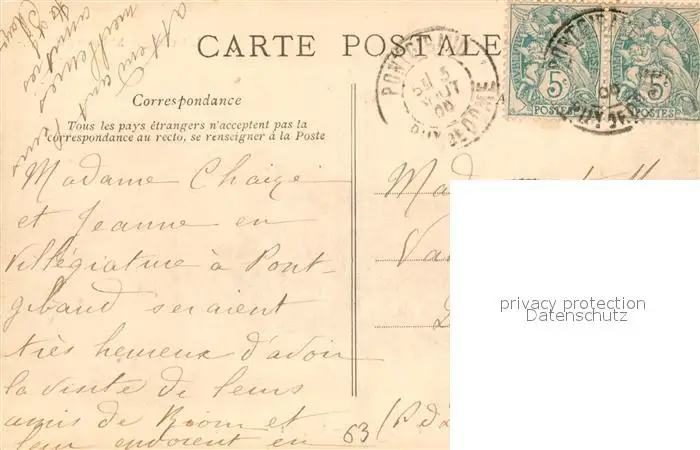 CARTE POSTALE
Correspondance
Tous les pays étrangers n'acceptent pas la
correspondance au recto, se renseigner à la Poste
Madame Chaize
et Jeanne en
villégiature à Pont-
gibaud seraient
très heureux d'avoir
la visite de leurs
amis de Riom et
leur envoient en
attendant leurs
meilleures
amitiés
PUY DE DOME
5c 5c
POSTES POSTES
Mad
Va
63 (P d
privacy protection
Datenschutz